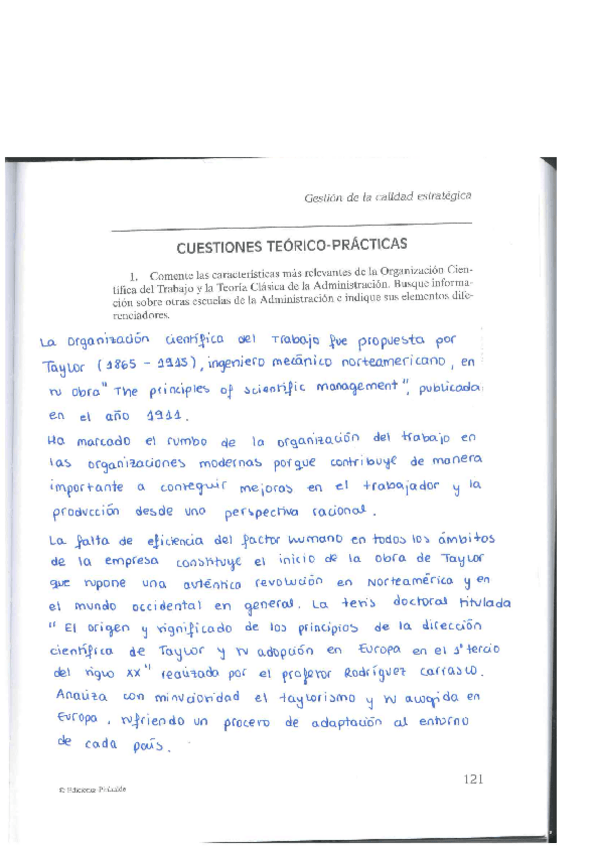 Gestión de la calidad estratégica
CUESTIONES TEÓRICO-PRÁCTICAS
1. Comente las características más relevantes de la Organización Cien-
tífica del Trabajo y la Teoría Clásica de la Administración. Busque informa-
ción sobre otras escuelas de la Administración e indique sus elementos dife-
renciadores.
La Organización científica del Trabajo fue propuesta por
Taylor (1865 - 1915), ingeniero mecánico norteamericano, en
su obra "The principles of scientific management", publicada
en el año 1911.
Ha marcado el rumbo de la organización del trabajo en
las organizaciones modernas porque contribuye de manera
importante a conseguir mejoras en el trabajador y la
producción desde una perspectiva racional.
La falta de eficiencia del factor humano en todos los ámbitos
de la empresa constituye el inicio de la obra de Taylor
que supone una auténtica revolución en Norteamérica y en
el mundo occidental en general. La tesis doctoral titulada
" El origen y significado de los principios de la dirección
científica de Taylor y su adopción en Europa en el 1º tercio
del siglo XX" realizada por el profesor Rodríguez Carrasco.
Analiza con minuciosidad el taylorismo y su acogida en
Europa, sufriendo un proceso de adaptación al entorno
de cada país.
121
© Ediciones Pirámide